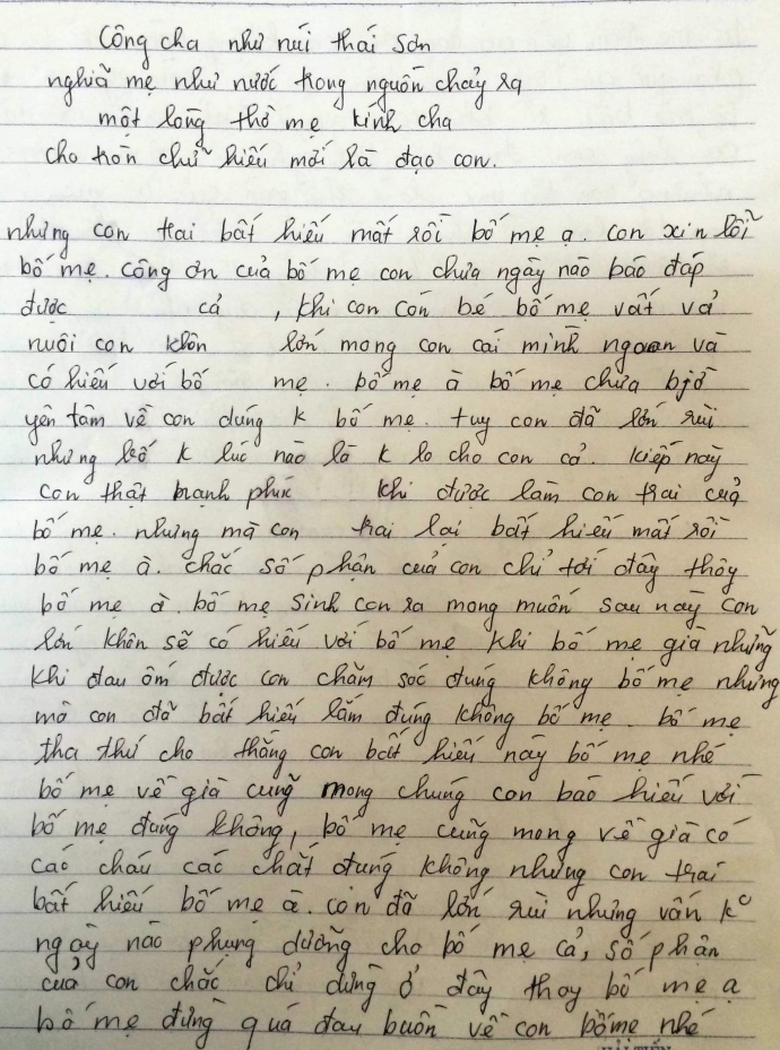 Công cha như núi thái sơn
nghiã mẹ như nước trong nguồn chảy ra
một lòng thờ mẹ kính cha
cho tròn chữ hiếu mới là đạo con.
nhưng con trai bất hiếu mất rồi bố mẹ ạ. con xin lỗi
bố mẹ. công ơn của bố mẹ con chưa ngày nào báo đáp
được cả, khi con còn bé bố mẹ vất vả
nuôi con khôn lớn mong con cái mình ngoan và
có hiếu với bố mẹ. bố mẹ à bố mẹ chưa bjờ
yên tâm về con đúng k bố mẹ. tuy con đã lớn rùi
nhưng bố k lúc nào là k lo cho con cả. kiếp này
con thật hạnh phúc khi được làm con trai của
bố mẹ. nhưng mà con trai lại bất hiếu mất rồi
bố mẹ à. chắc số phận của con chỉ tới đây thôy
bố mẹ à. bố mẹ sinh con ra mong muốn sau này con
lớn khôn sẽ có hiếu với bố mẹ khi bố mẹ già những
khi đau ốm được con chăm sóc đúng không bố mẹ nhưng
mà con đã bất hiếu lắm đúng không bố mẹ. bố mẹ
tha thứ cho thằng con bất hiếu này bố mẹ nhé
bố mẹ về già cũng mong chúng con báo hiếu với
bố mẹ đúng không, bố mẹ cũng mong về già có
các cháu các chắt đúng không nhưng con trai
bất hiếu bố mẹ à. con đã lớn rùi nhưng vẫn k°
ngày nào phụng dưỡng cho bố mẹ cả, số phận
của con chắc chỉ dừng ở đây thay bố mẹ ạ
bố mẹ đừng quá đau buồn về con bố mẹ nhé